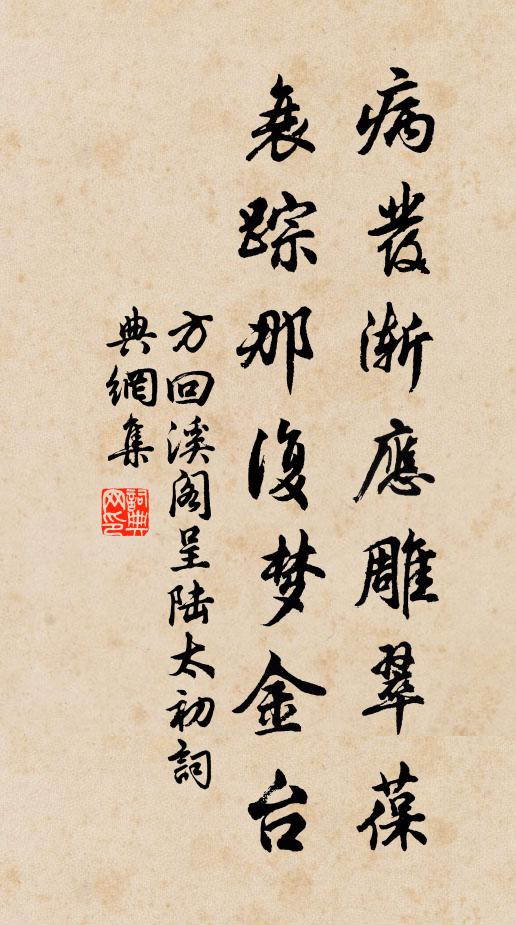 病發渐應雕翠葆
衰踪那復梦金台
方回溪阁呈陆太初詞
典網集
詞典网印